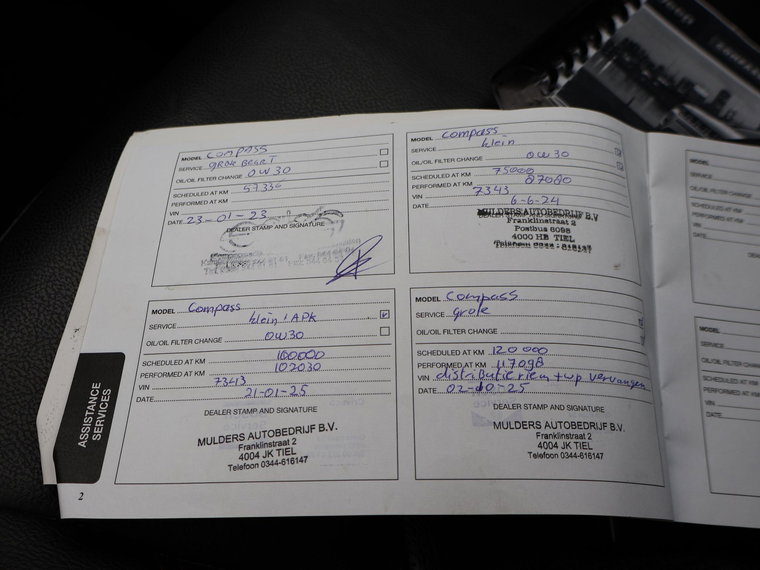 MODEL COMPASS
SERVICE GROTE BEURT
OIL/OIL FILTER CHANGE 0W30
SCHEDULED AT KM 57336
PERFORMED AT KM
VIN
DATE 23-01-23
DEALER STAMP AND SIGNATURE
MODEL Compass
SERVICE klein
OIL/OIL FILTER CHANGE 0W30
SCHEDULED AT KM 75000
PERFORMED AT KM 87080
VIN 7343
DATE 6-6-24
MULDERS AUTOBEDRIJF B.V
Franklinstraat 2
Postbus 6098
4000 HB TIEL
Telefoon 0344-616147
MODEL Compass
SERVICE klein / APK
OIL/OIL FILTER CHANGE 0W30
SCHEDULED AT KM 100000
PERFORMED AT KM 102030
VIN 7343
DATE 21-01-25
DEALER STAMP AND SIGNATURE
MULDERS AUTOBEDRIJF B.V.
Franklinstraat 2
4004 JK TIEL
Telefoon 0344-616147
MODEL Compass
SERVICE grote
OIL/OIL FILTER CHANGE
SCHEDULED AT KM 120 000
PERFORMED AT KM 117098
VIN distributieriem + wp vervangen
DATE 02-10-25
DEALER STAMP AND SIGNATURE
MULDERS AUTOBEDRIJF B.V.
Franklinstraat 2
4004 JK TIEL
Telefoon 0344-616147
ASSISTANCE
SERVICES
2
MODEL
SERVICE
OIL/OIL FILTER CHANGE
SCHEDULED AT KM
PERFORMED AT KM
VIN
DATE
MODEL
SERVICE
OIL/OIL FILTER CHANGE
SCHEDULED AT KM
PERFORMED AT KM
VIN
DATE